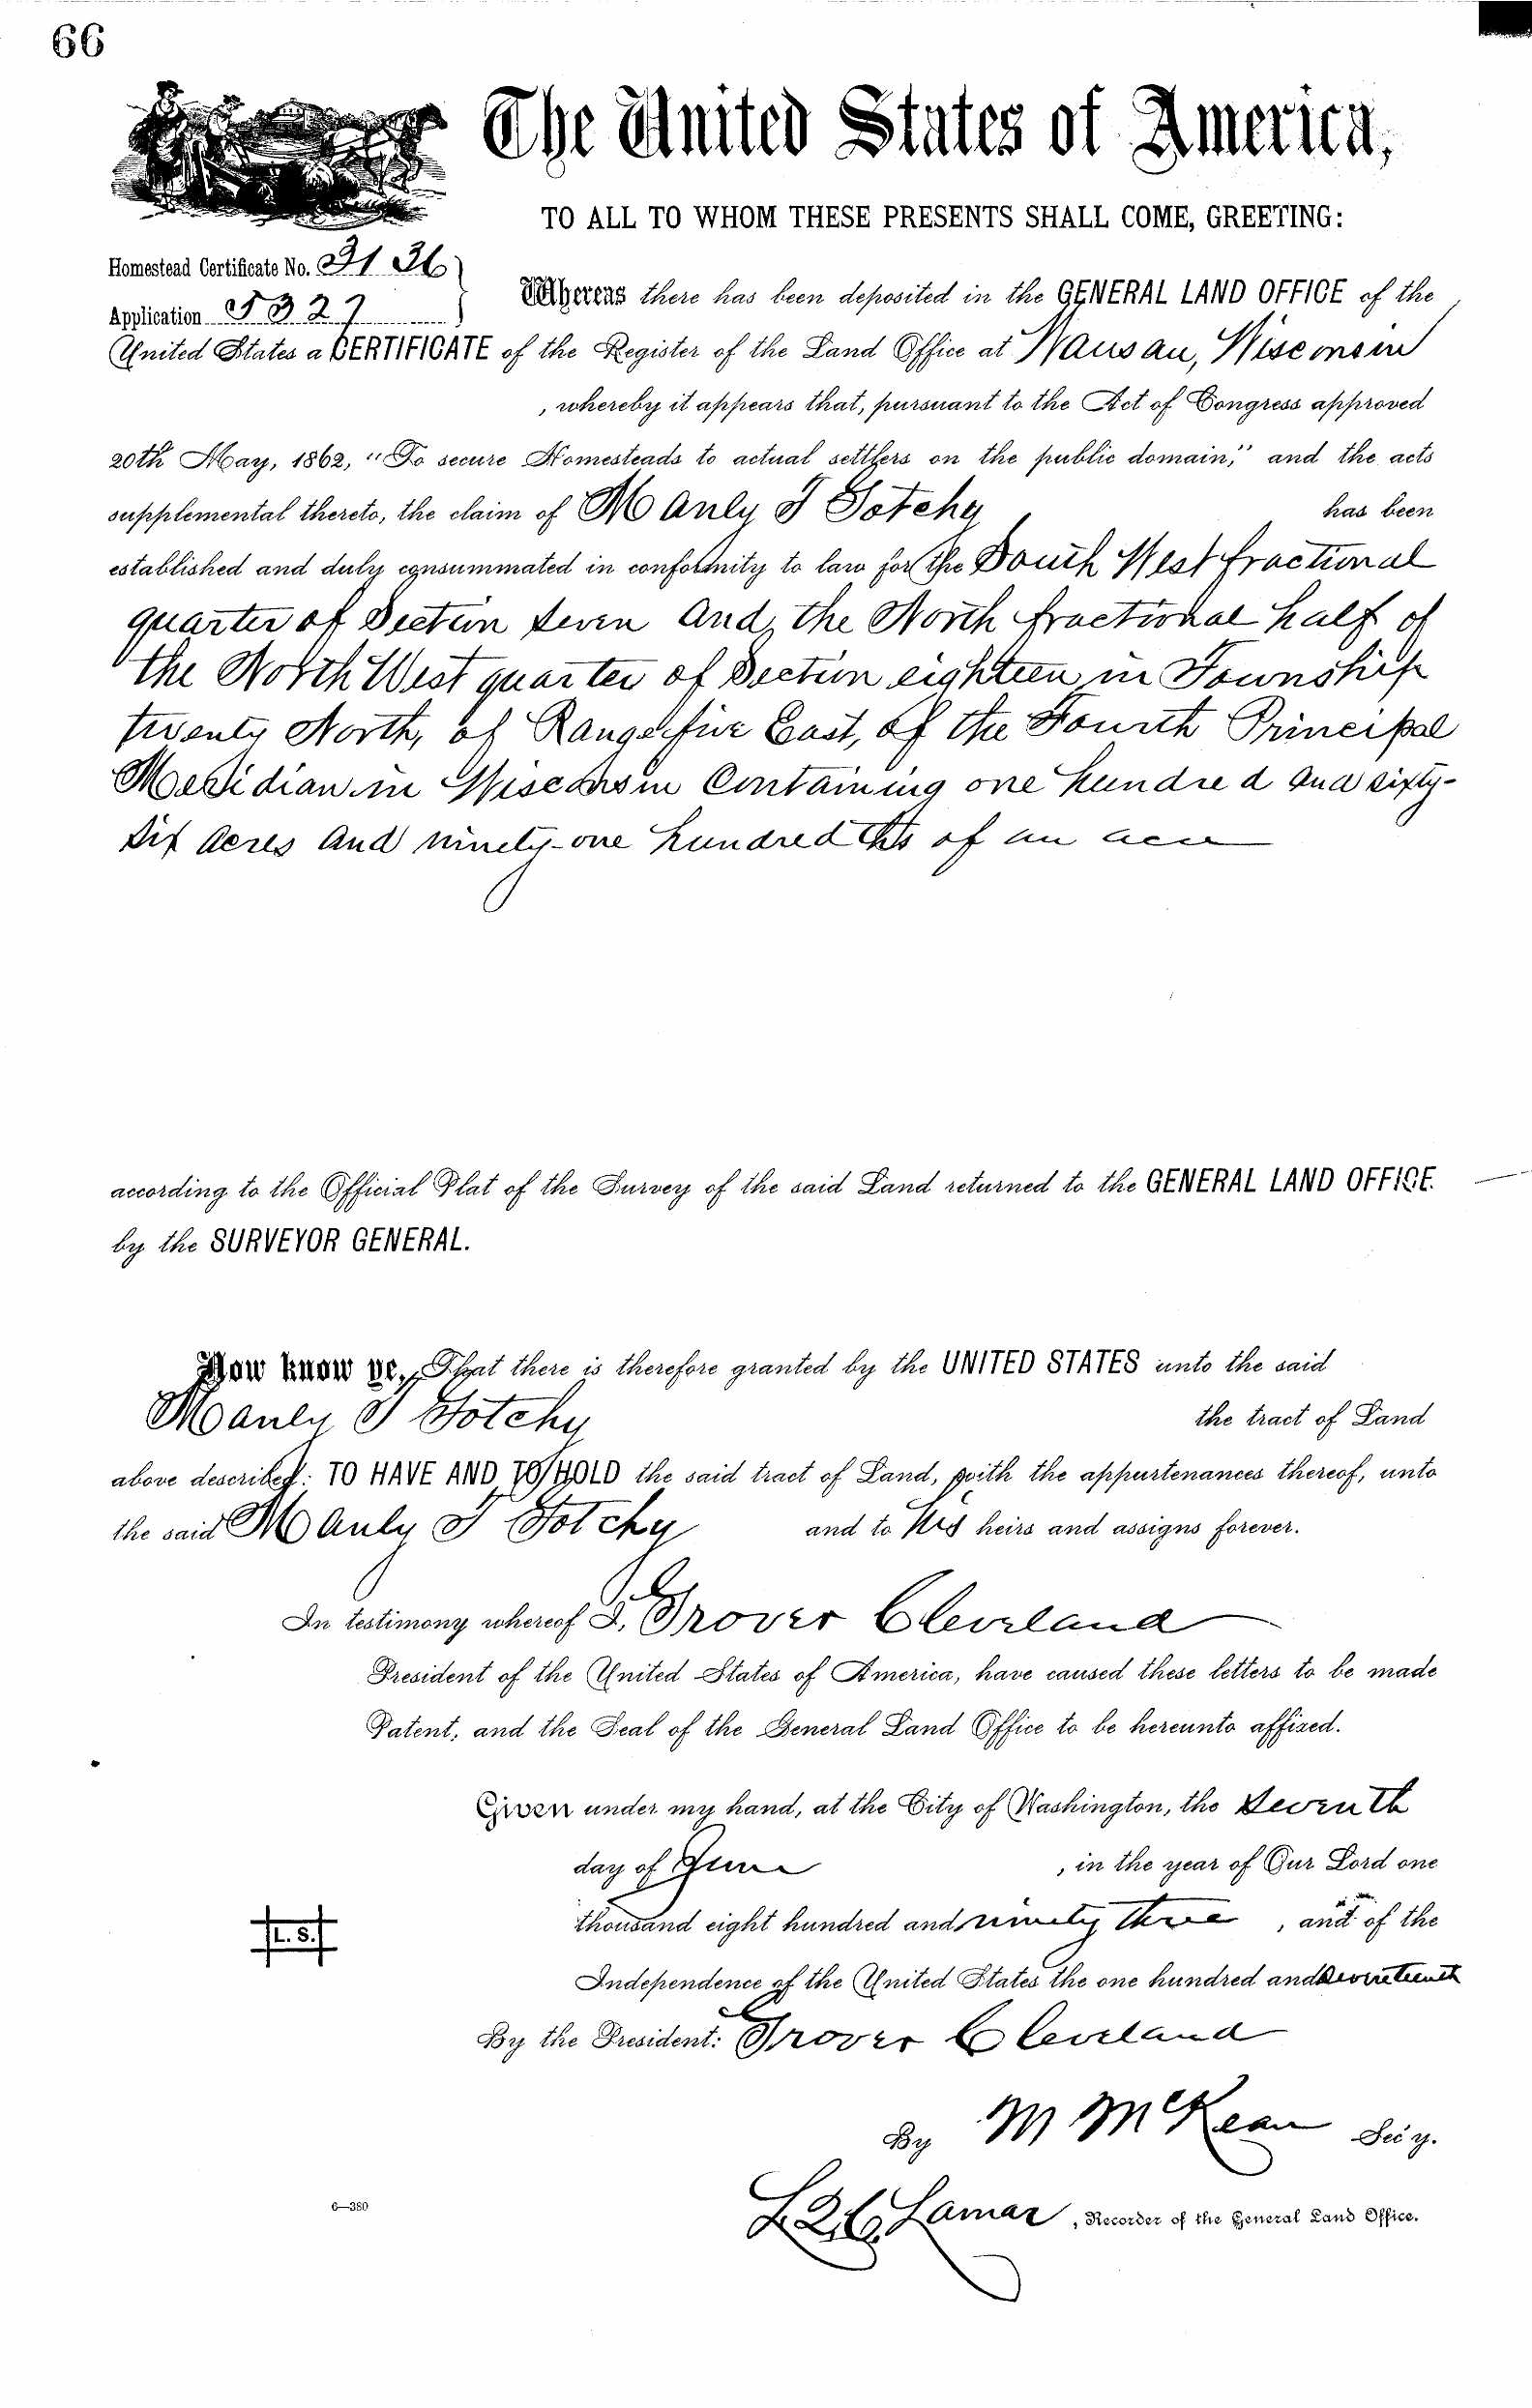 66
The United States of America,
TO ALL TO WHOM THESE PRESENTS SHALL COME, GREETING:
Homestead Certificate No. 3136
Application 5327
Whereas there has been deposited in the GENERAL LAND OFFICE of the
United States a CERTIFICATE of the Register of the Land Office at Wausau, Wisconsin
, whereby it appears that, pursuant to the Act of Congress approved
20th May, 1862, "To secure Homesteads to actual settlers on the public domain," and the acts
supplemental thereto, the claim of Manly T Totchy has been
established and duly consummated in conformity to law for the South West fractional
quarter of Section seven and the North fractional half of
the North West quarter of Section eighteen in Township
twenty North, of Range five East, of the Fourth Principal
Meridian in Wisconsin Containing one hundred and sixty-
six acres and ninety-one hundredths of an acre
according to the Official Plat of the Survey of the said Land returned to the GENERAL LAND OFFICE
by the SURVEYOR GENERAL.
Now know ye, That there is therefore granted by the UNITED STATES unto the said
Manly T Totchy the tract of Land
above described: TO HAVE AND TO HOLD the said tract of Land, with the appurtenances thereof, unto
the said Manly T Totchy and to his heirs and assigns forever.
In testimony whereof I, Grover Cleveland
President of the United States of America, have caused these letters to be made
Patent, and the Seal of the General Land Office to be hereunto affixed.
Given under my hand, at the City of Washington, the seventh
day of June , in the year of Our Lord one
thousand eight hundred and ninety three , and of the
Independence of the United States the one hundred and seventeenth
L.S.
By the President: Grover Cleveland
By M McKean Sec'y.
L Q C Lamar , Recorder of the General Land Office.
6—380